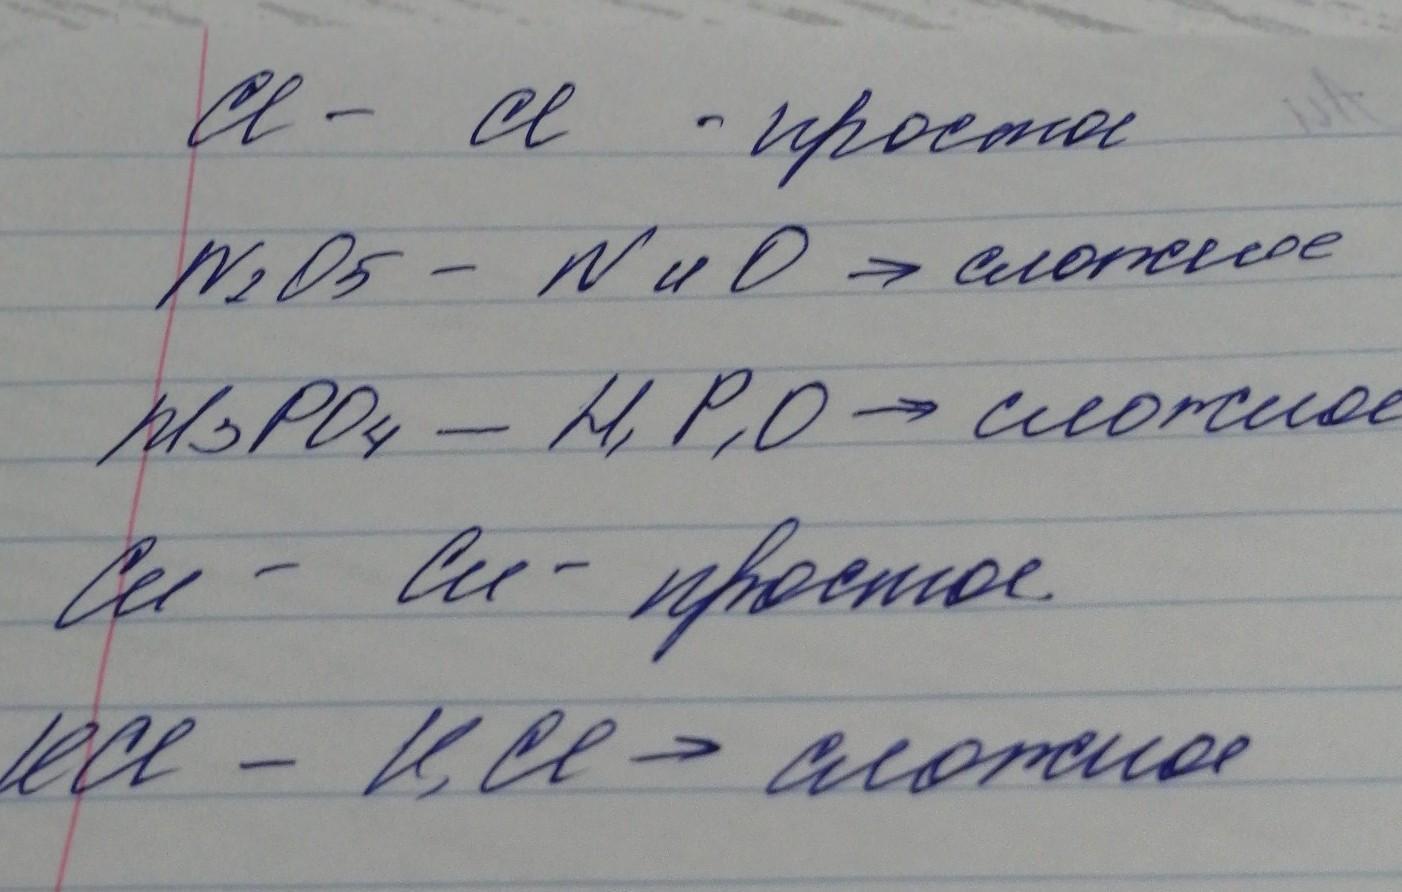 Cl - Cl - простое
N2O5 - N и O → сложное
H3PO4 - H, P, O → сложное
Cu - Cu - простое
HCl - H, Cl → сложное